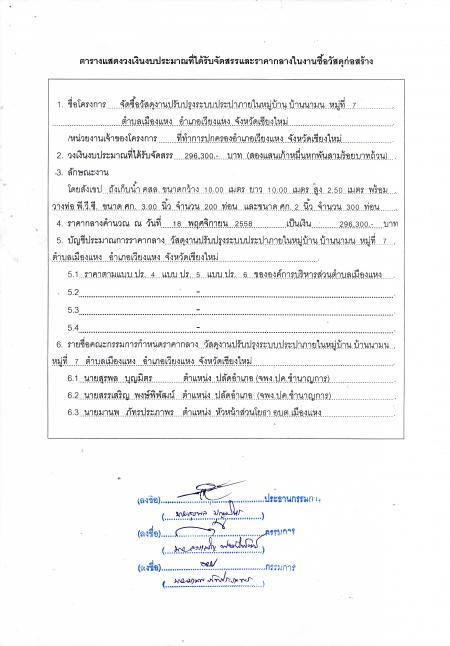 ตารางแสดงวงเงินงบประมาณที่ได้รับจัดสรรและราคากลางในงานซื้อวัสดุก่อสร้าง
1. ชื่อโครงการ จัดซื้อวัสดุงานปรับปรุงระบบประปาภายในหมู่บ้าน บ้านนามน หมู่ที่ 7
ตำบลเมืองแหง อำเภอเวียงแหง จังหวัดเชียงใหม่
/หน่วยงานเจ้าของโครงการ ที่ทำการปกครองอำเภอเวียงแหง จังหวัดเชียงใหม่
2. วงเงินงบประมาณที่ได้รับจัดสรร 296,300.- บาท (สองแสนเก้าหมื่นหกพันสามร้อยบาทถ้วน)
3. ลักษณะงาน
โดยสังเขป ถังเก็บน้ำ คสล. ขนาดกว้าง 10.00 เมตร ยาว 10.00 เมตร สูง 2.50 เมตร พร้อม
วางท่อ พี.วี.ซี. ขนาด ศก. 3.00 นิ้ว จำนวน 200 ท่อน และขนาด ศก. 2 นิ้ว จำนวน 300 ท่อน
4. ราคากลางคำนวณ ณ วันที่ 18 พฤศจิกายน 2558 เป็นเงิน 296,300.- บาท
5. บัญชีประมาณการราคากลาง วัสดุงานปรับปรุงระบบประปาภายในหมู่บ้าน บ้านนามน หมู่ที่ 7
ตำบลเมืองแหง อำเภอเวียงแหง จังหวัดเชียงใหม่
5.1 ราคาตามแบบ ปร. 4 แบบ ปร. 5 แบบ ปร. 6 ขององค์การบริหารส่วนตำบลเมืองแหง
5.2 -
5.3 -
5.4 -
6. รายชื่อคณะกรรมการกำหนดราคากลาง วัสดุงานปรับปรุงระบบประปาภายในหมู่บ้าน บ้านนามน
หมู่ที่ 7 ตำบลเมืองแหง อำเภอเวียงแหง จังหวัดเชียงใหม่
6.1 นายสุรพล บุญมิตร ตำแหน่ง ปลัดอำเภอ (จพง.ปค.ชำนาญการ)
6.2 นายสรรเสริญ พงษ์พิพัฒน์ ตำแหน่ง ปลัดอำเภอ (จพง.ปค.ชำนาญการ)
6.3 นายมานพ ภัทรประภาพร ตำแหน่ง หัวหน้าส่วนโยธา อบต.เมืองแหง
(ลงชื่อ) ประธานกรรมการ
(นายสุรพล บุญมิตร)
(ลงชื่อ) กรรมการ
(นายสรรเสริญ พงษ์พิพัฒน์)
(ลงชื่อ) กรรมการ
(นายมานพ ภัทรประภาพร)